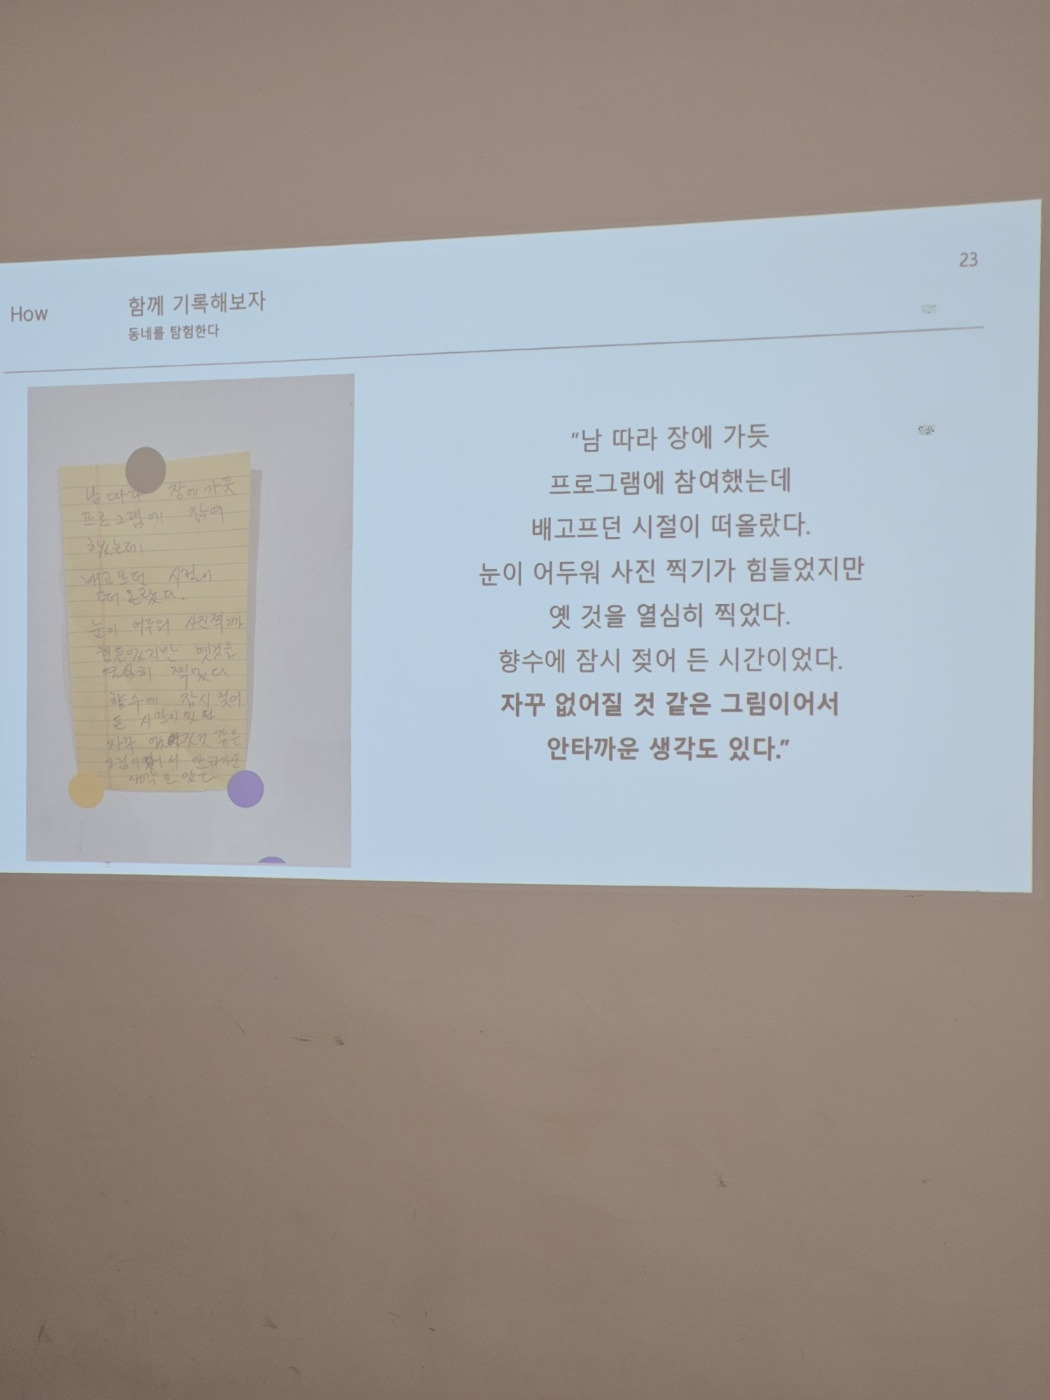 How
함께 기록해보자
동네를 탐험한다
23
남 따라 장에 가듯
프로그램에 참여
했는데
배고프던 시절이
떠올랐다.
눈이 어두워 사진찍기가
힘들었지만 옛것을
열심히 찍었다
향수에 잠시 젖어
든 시간이었다
자꾸 없어질것 같은
그림이어서 안타까운
생각도 있다
“남 따라 장에 가듯
프로그램에 참여했는데
배고프던 시절이 떠올랐다.
눈이 어두워 사진 찍기가 힘들었지만
옛 것을 열심히 찍었다.
향수에 잠시 젖어 든 시간이었다.
자꾸 없어질 것 같은 그림이어서
안타까운 생각도 있다.”